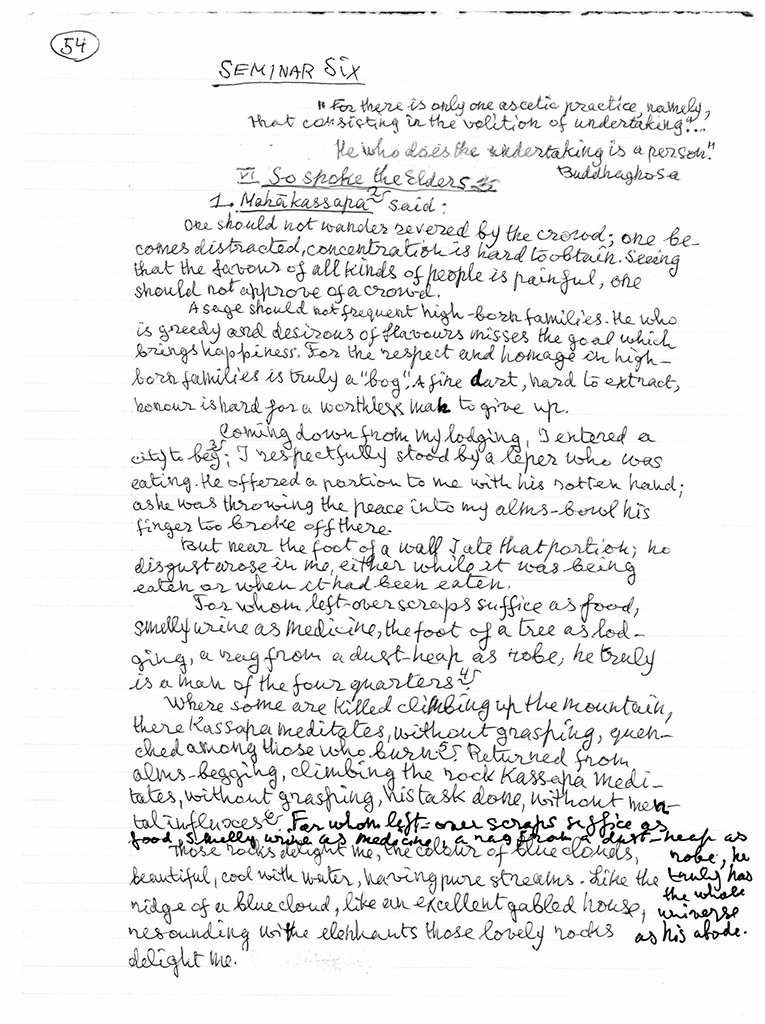 54
SEMINAR SIX
"For there is only one ascetic practice, namely,
that consisting in the volition of undertaking"...
He who does the undertaking is a person."
Buddhaghosa
VI So spoke the Elders
1. Mahākassapa said:
One should not wander revered by the crowd; one be-
comes distracted, concentration is hard to obtain. Seeing
that the favour of all kinds of people is painful, one
should not approve of a crowd.
A sage should not frequent high-born families. He who
is greedy and desirous of flavours misses the goal which
brings happiness. For the respect and homage in high-
born families is truly a "bog". A fine dart, hard to extract,
honour is hard for a worthless man to give up.
Coming down from my lodging, I entered a
city to beg 3); I respectfully stood by a leper who was
eating. He offered a portion to me with his rotten hand;
as he was throwing the peace into my alms-bowl his
finger too broke off there.
But near the foot of a wall I ate that portion; no
disgust arose in me, either while it was being
eaten or when it had been eaten.
For whom left-over scraps suffice as food,
smelly urine as medicine, the foot of a tree as lod-
ging, a rag from a dust-heap as robe, he truly
is a man of the four quarters 4).
Where some are killed climbing up the mountain,
there Kassapa meditates, without grasping, quen-
ched among those who burn 5). Returned from
alms-begging, climbing the rock Kassapa medi-
tates, without grasping, his task done, without men-
tal influxes 6). For whom left-over scraps suffice as
food, smelly urine as medicine, a rag from a dust-heap as
robe, he
truly has
the whole
universe
as his abode.
Those rocks delight me, the colour of blue clouds,
beautiful, cool with water, having pure streams. Like the
ridge of a blue cloud, like an excellent gabled house,
resounding with elephants those lovely rocks
delight me.